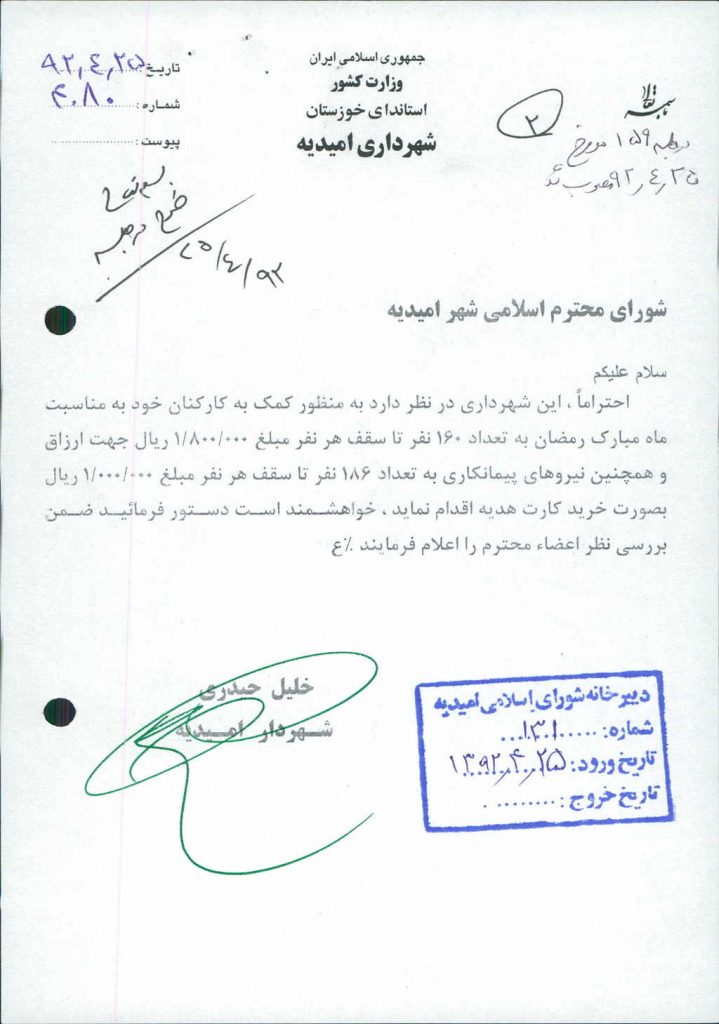 جمهوری اسلامی ایران
وزارت کشور
استانداری خوزستان
شهرداری امیدیه
تاریخ: ۹۲٫۴٫۲۵
شماره: ۴۰۸۰
پیوست:
باسمه تعالی
۲
در جلسه ۱۵۹ مورخ
۹۲٫۴٫۲۵ مصوب شد
بسمه تعالی
طرح در جلسه
۹۲/۴/۲۵
شورای محترم اسلامی شهر امیدیه
سلام علیکم
احتراماً ، این شهرداری در نظر دارد به منظور کمک به کارکنان خود به مناسبت
ماه مبارک رمضان به تعداد ۱۶۰ نفر تا سقف هر نفر مبلغ ۱/۸۰۰/۰۰۰ ریال جهت ارزاق
و همچنین نیروهای پیمانکاری به تعداد ۱۸۶ نفر تا سقف هر نفر مبلغ ۱/۰۰۰/۰۰۰ ریال
بصورت خرید کارت هدیه اقدام نماید ، خواهشمند است دستور فرمائید ضمن
بررسی نظر اعضاء محترم را اعلام فرمایند ٪ع
خلیل حیدری
شهردار امیدیه
دبیرخانه شورای اسلامی امیدیه
شماره: ۱۳۱۰
تاریخ ورود: ۱۳۹۲٫۴٫۲۵
تاریخ خروج: